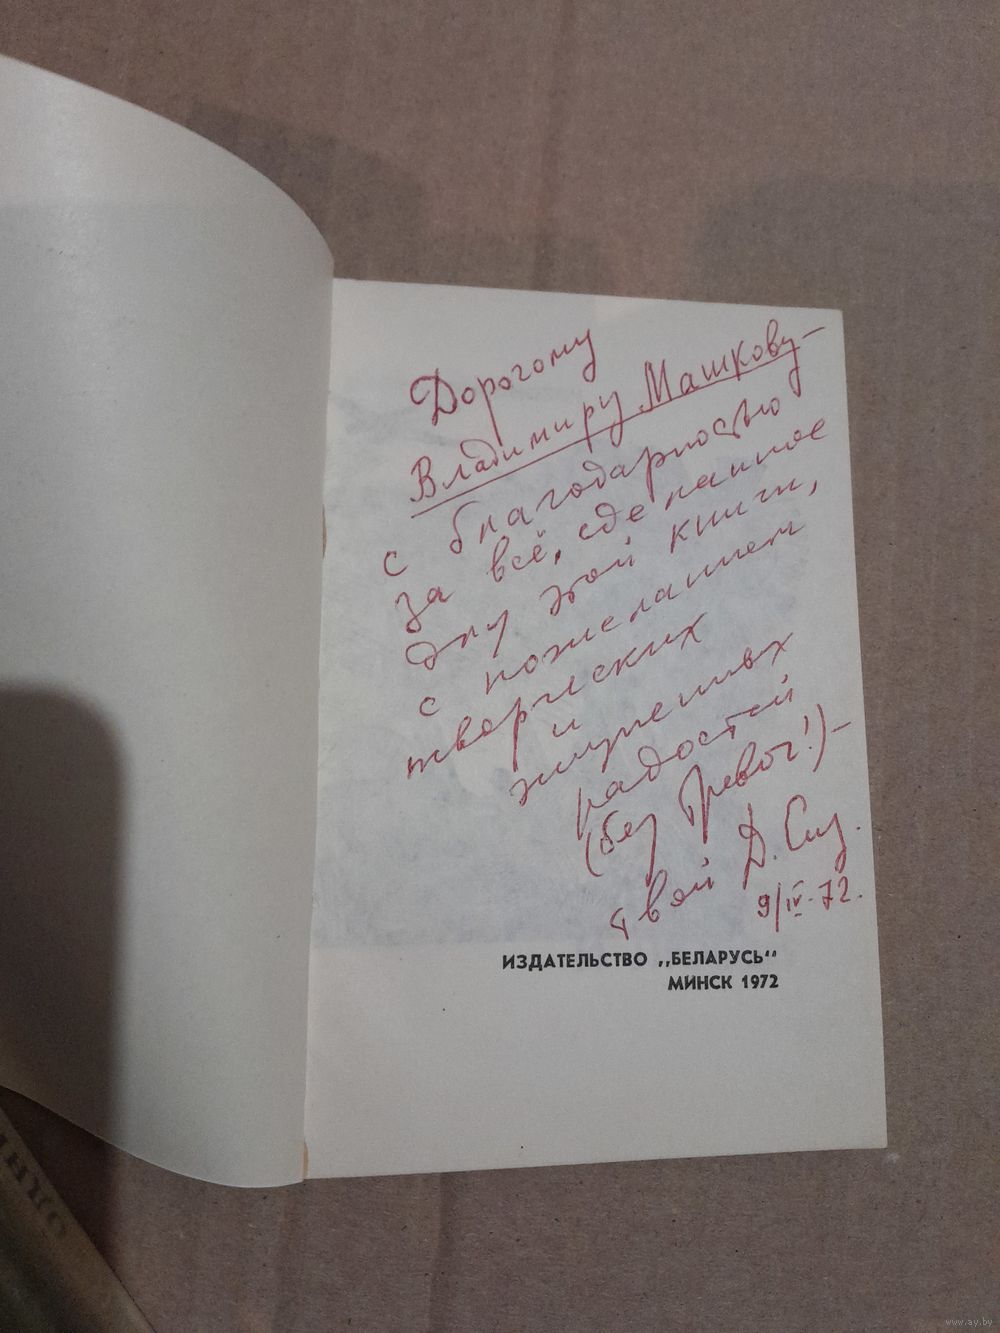 Дорогому
Владимиру Машкову –
с благодарностью
за всё, сделанное
для этой книги,
с пожеланием
творческих
и
жизненных
радостей
(без тревог!) –
твой Д.
9/IV-72.
ИЗДАТЕЛЬСТВО „БЕЛАРУСЬ“
МИНСК 1972
www.ay.by